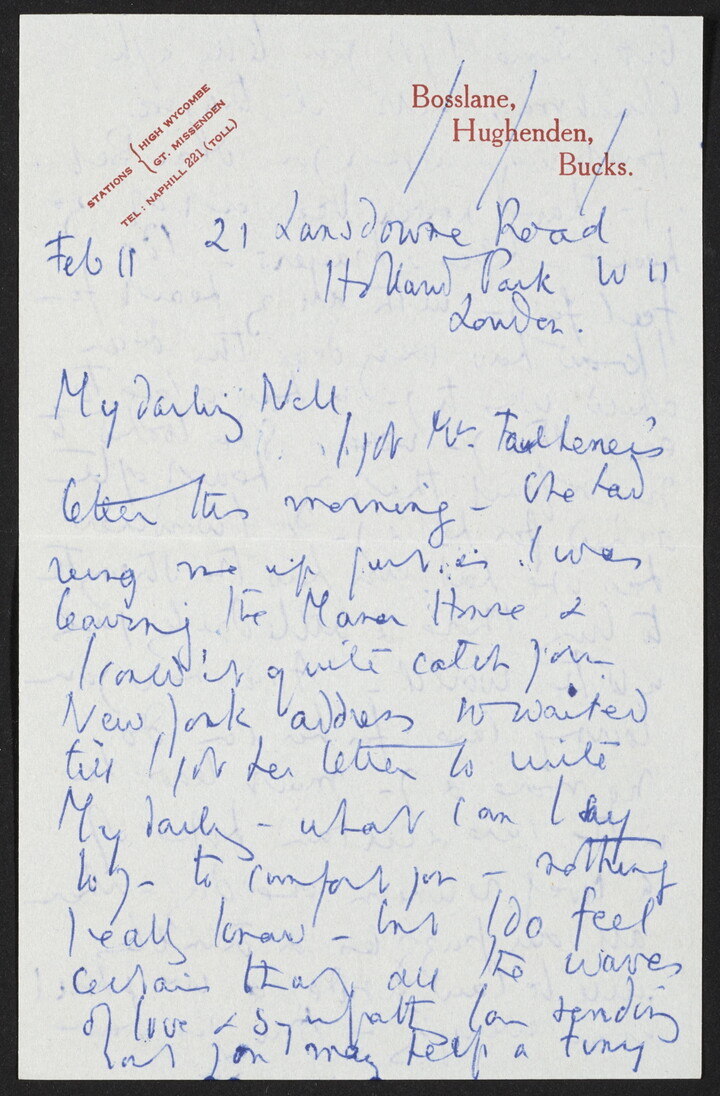 STATIONS { HIGH WYCOMBE
GT. MISSENDEN
TEL: NAPHILL 221 (TOLL)
Bosslane,
Hughenden,
Bucks.
Feb 11
21 Lansdowne Road
Holland Park W 11
London.
My darling Nell,
I got Mr. Faulkener's
letter this morning – She had
rung me up just as I was
leaving the Manor House &
I couldn't quite catch your
New York address so waited
till I got her letter to write
My darling – what can I say
to – to comfort you – nothing
I really know – but I do feel
certain that all the waves
of love & sympathy I am sending
out you may help a tiny